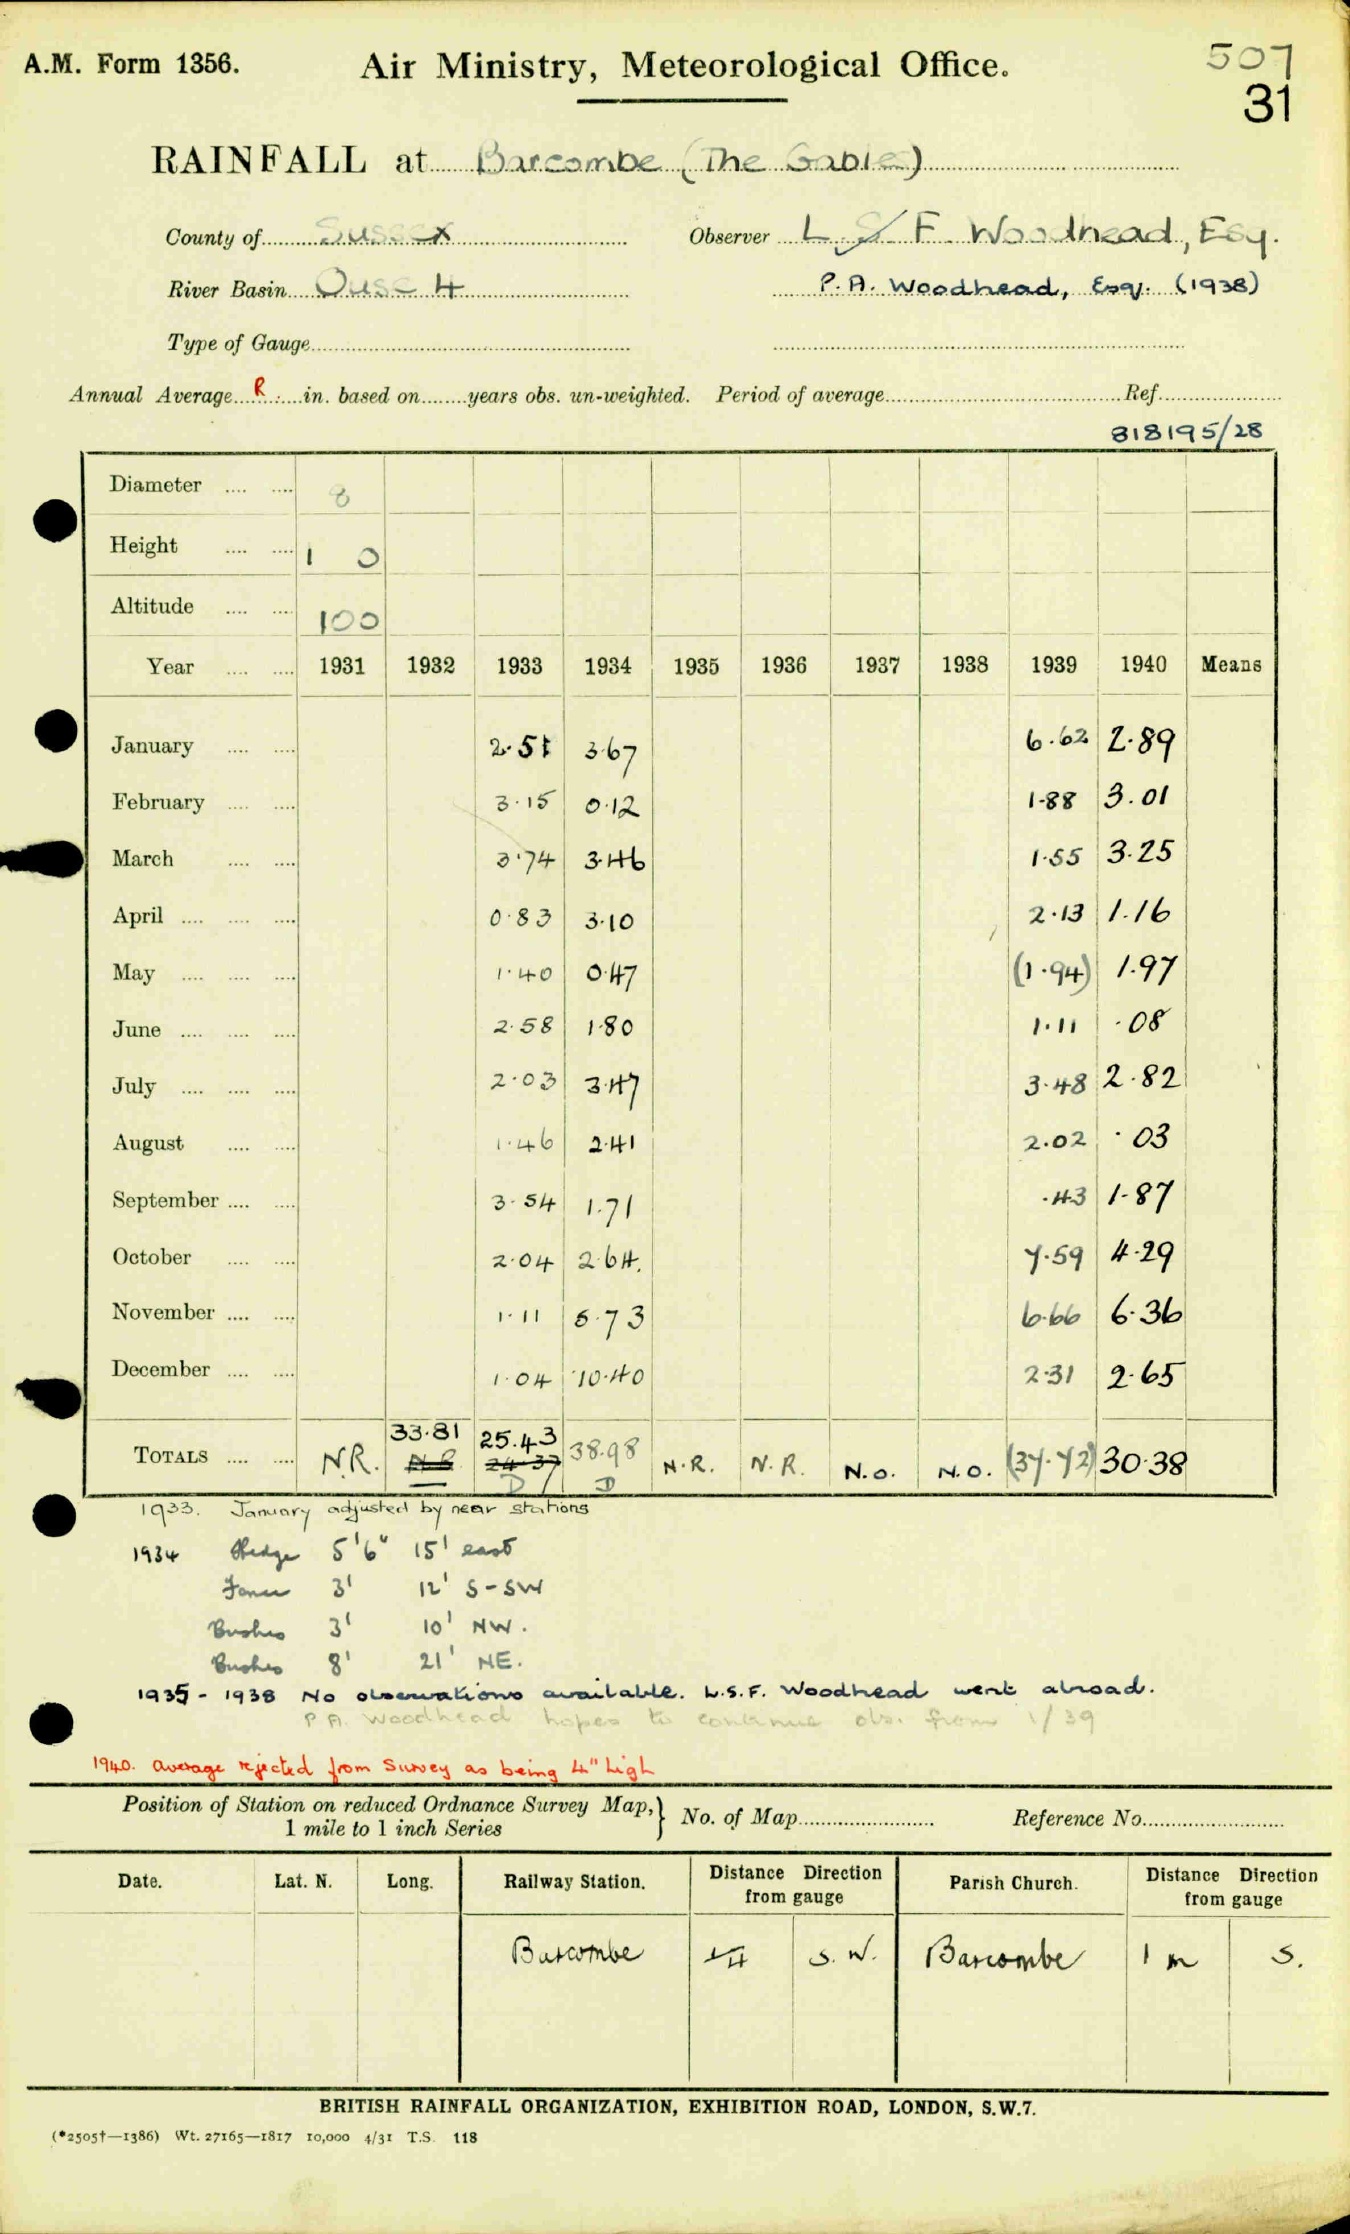 A.M. Form 1356.
Air Ministry, Meteorological Office.
507
31
RAINFALL at Barcombe (The Gable)
County of Sussex Observer L. S. F. Woodhead, Esq.
River Basin Ouse 4 P. A. Woodhead, Esq. (1938)
Type of Gauge
Annual Average R. in. based on years obs. un-weighted. Period of average Ref.
818195/28
Diameter 8
Height 1 0
Altitude 100
Year 1931 1932 1933 1934 1935 1936 1937 1938 1939 1940 Means
January 2.51 3.67 6.62 2.89
February 3.15 0.12 1.88 3.01
March 3.74 3.46 1.55 3.25
April 0.83 3.10 2.13 1.16
May 1.40 0.47 (1.94) 1.97
June 2.58 1.80 1.11 .08
July 2.03 3.47 3.48 2.82
August 1.46 2.41 2.02 .03
September 3.54 1.71 .43 1.87
October 2.04 2.64 7.59 4.29
November 1.11 5.73 6.66 6.36
December 1.04 10.40 2.31 2.65
33.81 25.43
TOTALS N.R. N.R. 24.37 38.98 N.R. N.R. N.O. N.O. (37.72) 30.38
D D
1933. January adjusted by near stations
1934 Hedge 5'6" 15' east
Fence 3' 12' S-SW
Bushes 3' 10' NW.
Bushes 8' 21' NE.
1935 - 1938 No observations available. L.S.F. Woodhead went abroad.
P A. Woodhead hopes to continue obs. from 1/39
1940. Average rejected from Survey as being 4" high
Position of Station on reduced Ordnance Survey Map, } No. of Map Reference No.
1 mile to 1 inch Series
Date. Lat. N. Long. Railway Station. Distance Direction from gauge Parish Church. Distance Direction from gauge
Barcombe 1/4 S.W. Barcombe 1 m S.
BRITISH RAINFALL ORGANIZATION, EXHIBITION ROAD, LONDON, S.W.7.
(*2505†—1386) Wt. 27165—1817 10,000 4/31 T.S. 118